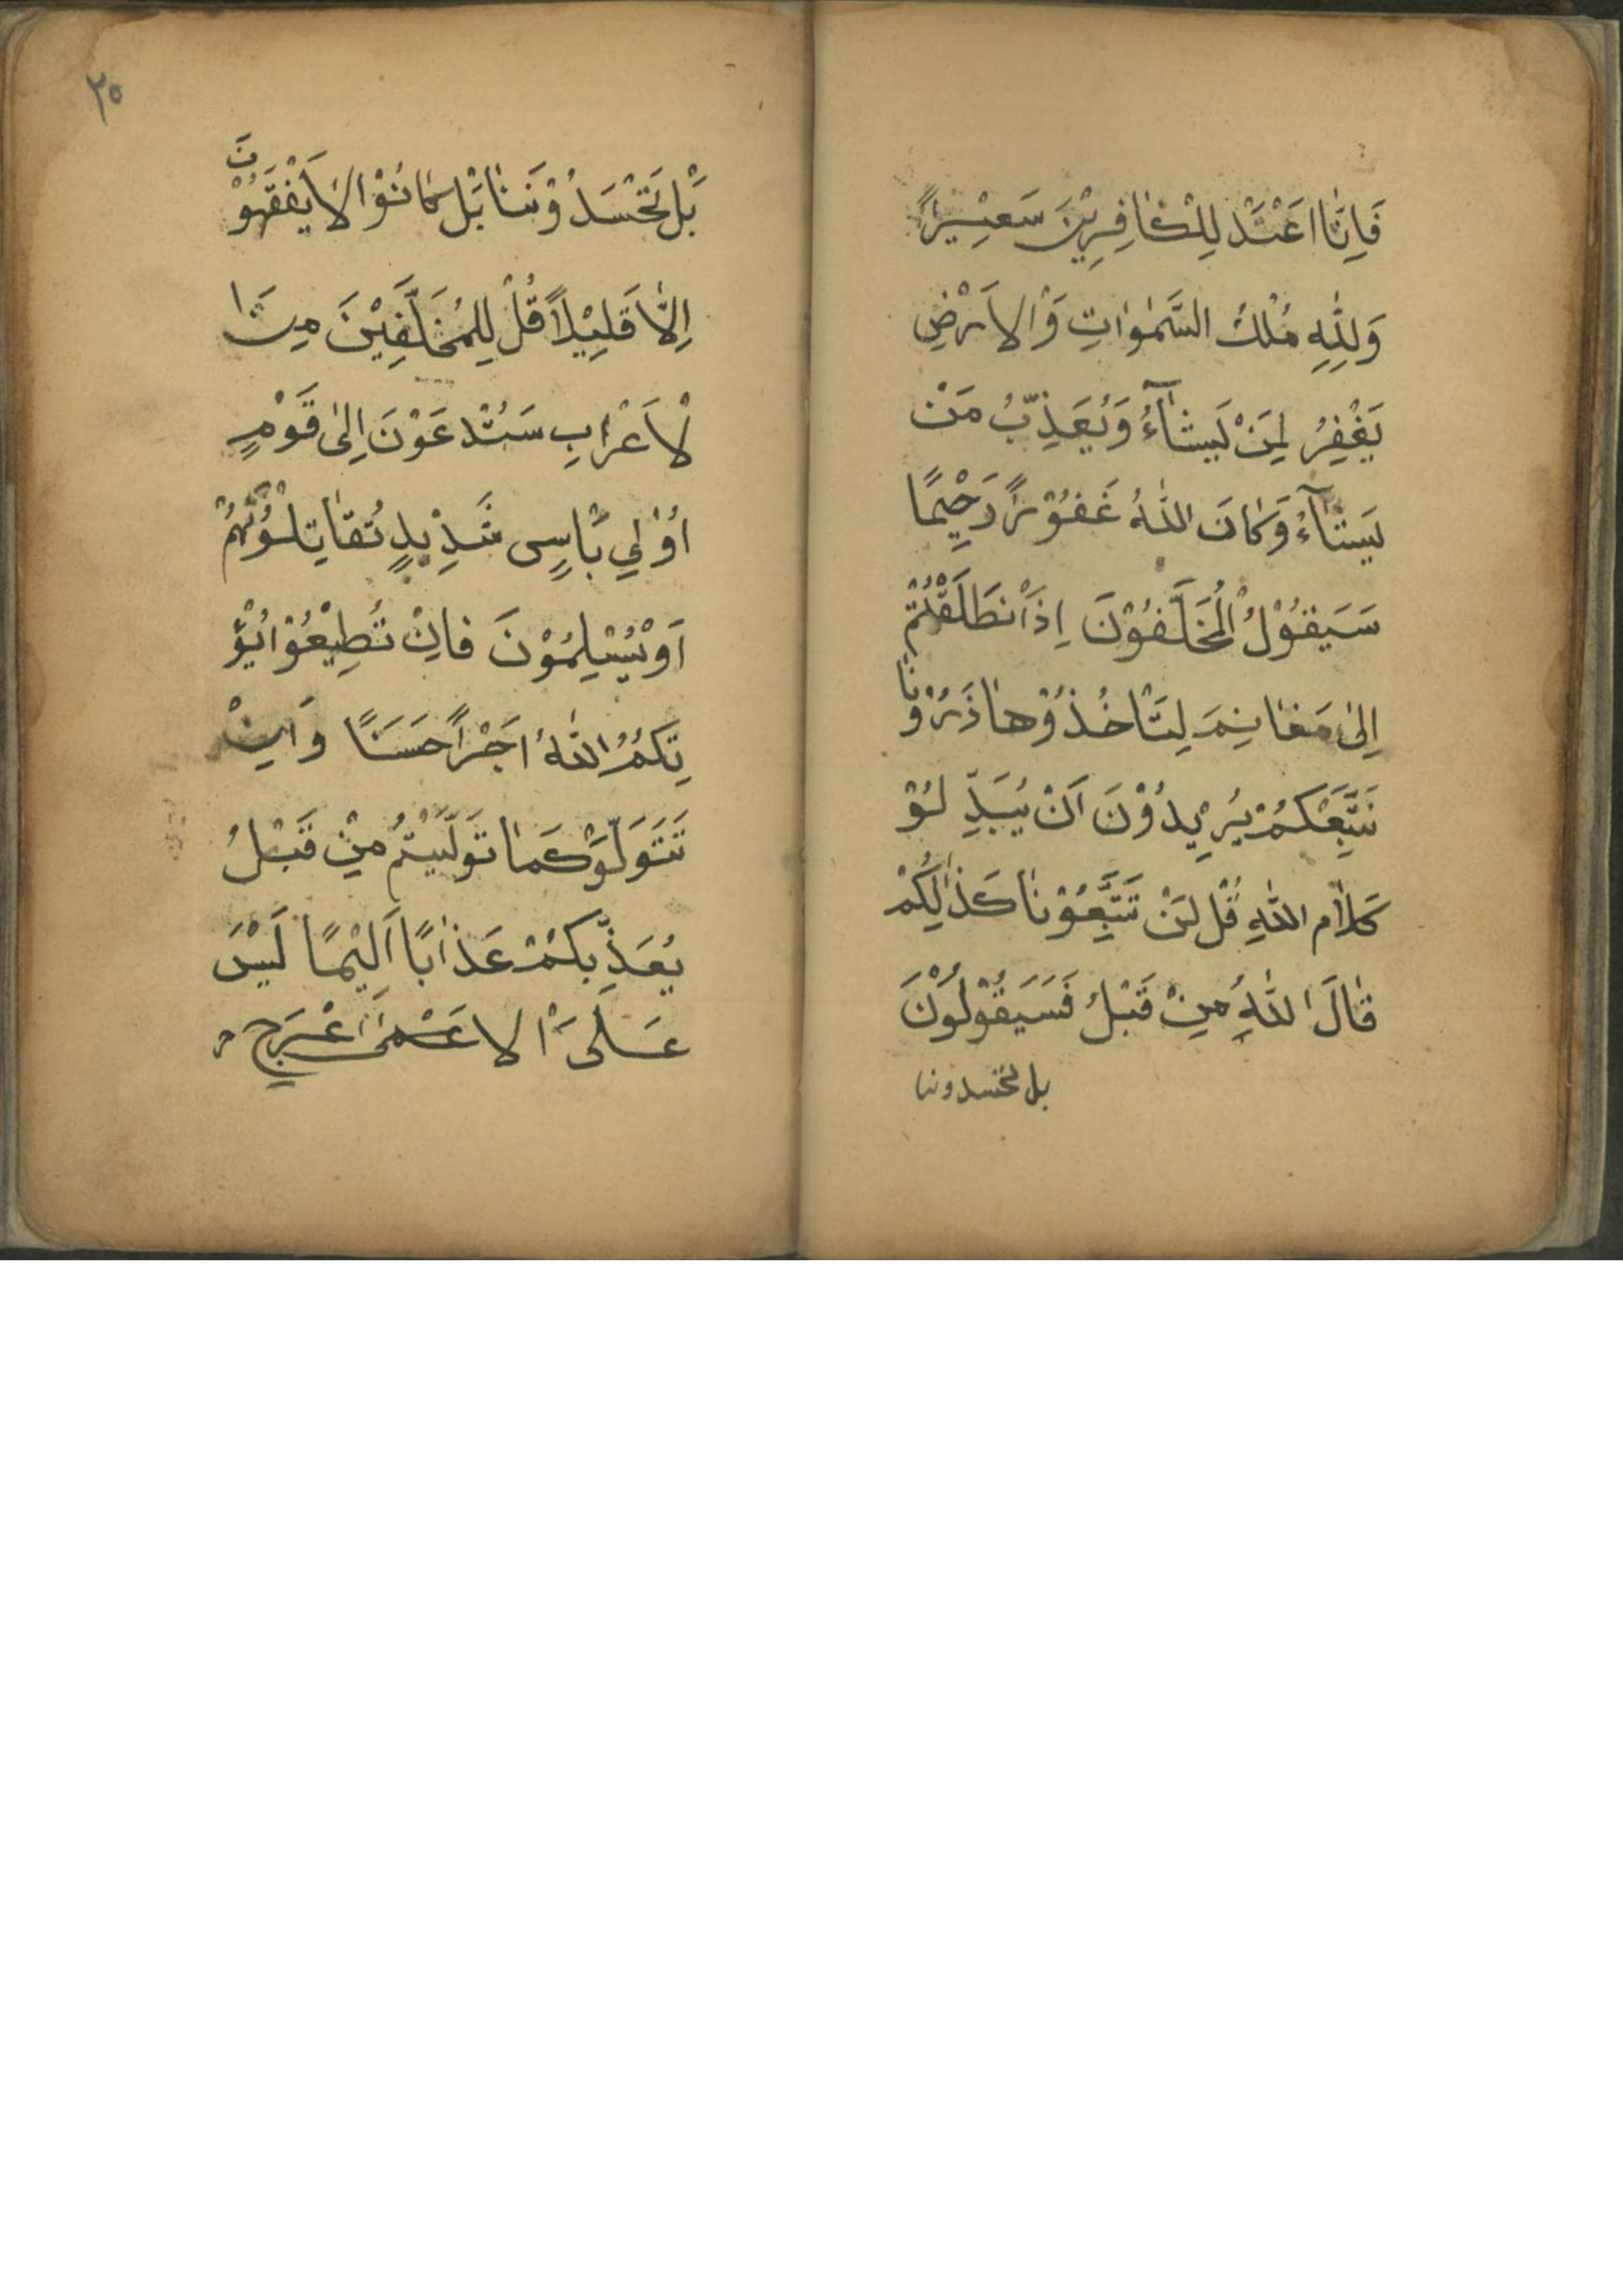 فَاِنَّا اَعْتَدْ لِلْكٰافِرِيْنَ سَعِيْراً
وَلِلّٰهِ مُلْكُ السَّمٰوٰاتِ وَالْاَرْضِ
يَغْفِرُ لِمَنْ يَشٰآءُ وَيُعَذِّبُ مَنْ
يَشٰآءُ وَكٰانَ اللّٰهُ غَفُوْراً رَحِيْمًا
سَيَقُوْلُ الْمُخَلَّفُوْنَ اِذَا انْطَلَقْتُمْ
اِلىٰ مَغٰانِمَ لِتَاْخُذُوْهٰا ذَرُوْنٰا
نَتَّبِعْكُمْ يُرِيْدُوْنَ اَنْ يُبَدِّلُوْ
كَلاٰم اللّٰهِ قُل لَنْ تَتَّبِعُوْنٰا كَذٰلِكُمْ
قٰالَ اللّٰهُ مِنْ قَبْلُ فَسَيَقُوْلُوْنَ
بل تحسدوننا
٢٥
بَلْ تَحْسَدُوْنَنٰا بَلْ كٰانُوْا لاٰ يَفْقَهُوْنَ
اِلّاٰ قَلِيْلاً قُلْ لِلْمُخَلَّفِيْنَ مِنَ ا
لْاَعْرٰابِ سَتُدْعَوْنَ اِلىٰ قَوْمٍ
اُوْلٰي بَاْسٍى شَدِيْدٍ تُقٰاتِلُوْنَهُمْ
اَوْ يُسْلِمُوْنَ فٰاِنْ تُطِيْعُوْا يُؤْ
تِكُمُ اللّٰهُ اَجْراً حَسَنًا وَاِنْ
تَتَوَلَّوْ كَمٰا تَوَلَّيْتُمْ مِنْ قَبْلُ
يُعَذِّبكُمْ عَذٰابًا اَلِيْمًا لَيْسَ
عَلَى الْاَعْمىٰ اعْرَجِ م